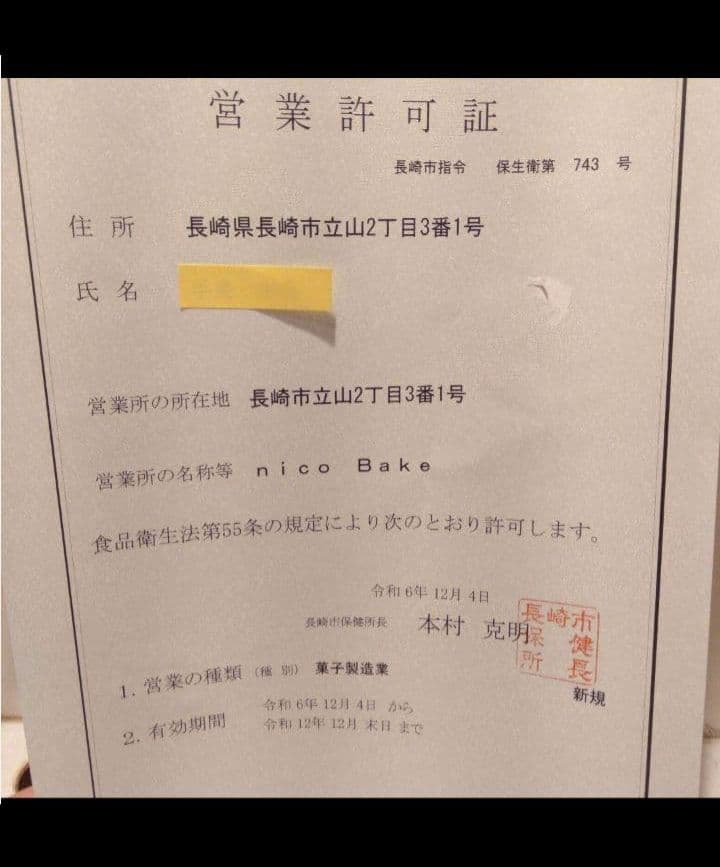 営業許可証
長崎市指令 保生衛第 743 号
住所 長崎県長崎市立山2丁目3番1号
氏名
営業所の所在地 長崎市立山2丁目3番1号
営業所の名称等 nico Bake
食品衛生法第55条の規定により次のとおり許可します。
令和 6年 12月 4日
長崎市保健所長 本村 克明
長崎市保健所長
新規
1. 営業の種類 (種 別) 菓子製造業
2. 有効期間 令和 6年 12月 4日 から
令和 12年 12月 末日 まで